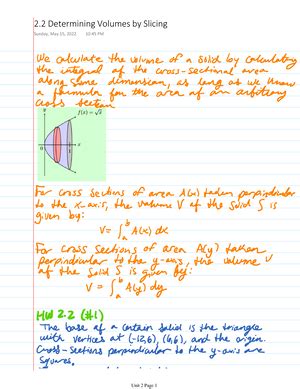 2.2 Determining Volumes by Slicing
Sunday, May 15, 2022 10:45 PM
We calculate the volume of a solid by calculating
the integral of the cross-sectional area
along some dimension, as long as we know
a formula for the area of an arbitrary
cross section
y
f(x) = √x
0
1
x
For cross sections of area A(x) taken perpendicular
to the x-axis, the volume V of the solid S is
given by:
V = ∫ₐᵇ A(x) dx
For cross sections of area A(y) taken
perpendicular to the y-axis, the volume V
of the solid S is given by:
V = ∫ₐᵇ A(y) dy
HW 2.2 (#1)
The base of a certain solid is the triangle
with vertices at (-12,6), (6,6), and the origin.
Cross-sections perpendicular to the y-axis are
squares.
Unit 2 Page 1